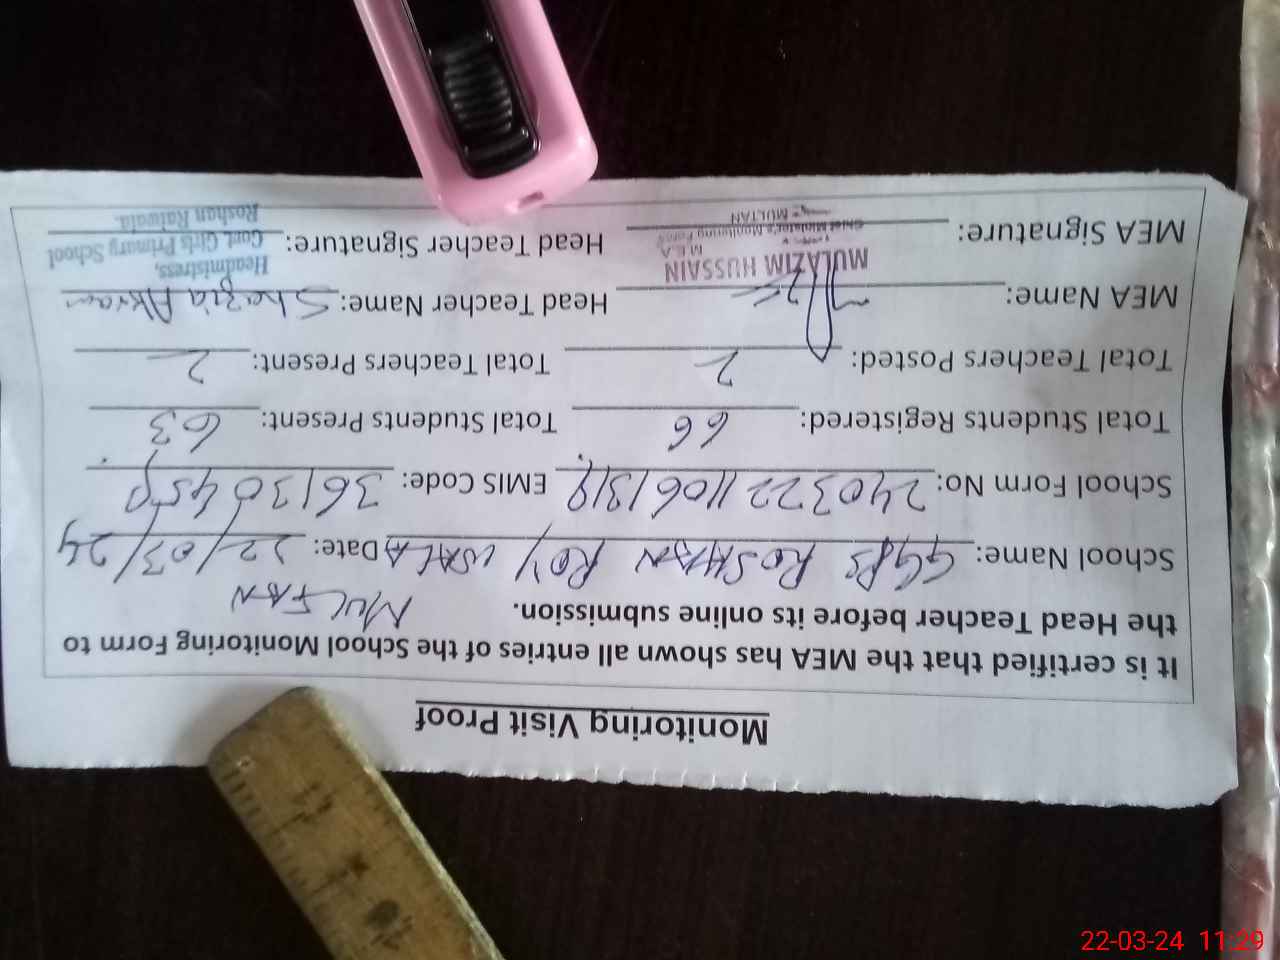 Monitoring Visit Proof
It is certified that the MEA has shown all entries of the School Monitoring Form to
the Head Teacher before its online submission.
MULTAN
School Name: GGPS ROSHAN ROY WALA Date: 22/03/24
School Form No: EMIS Code:
Total Students Registered: 66 Total Students Present: 63
Total Teachers Posted: 2 Total Teachers Present: 2
MEA Name: Head Teacher Name: Shazia Akram
MULAZIM HUSSAIN
M.E.A
Chief Minister's Monitoring Force
MULTAN
MEA Signature: Head Teacher Signature:
Headmistress,
Govt. Girls Primary School
Roshan Raiwala.
22-03-24 11:29